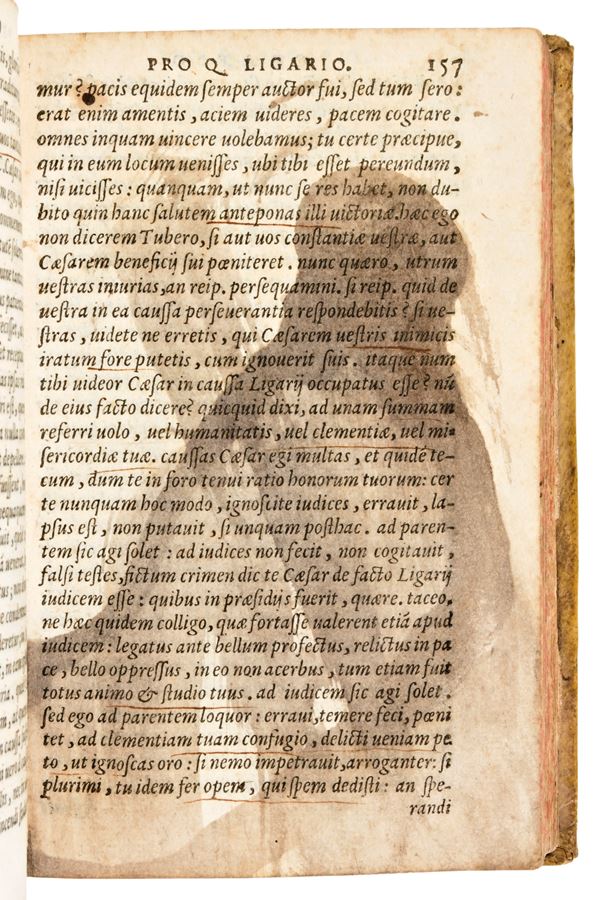 PRO Q LIGARIO. 157
mur? pacis equidem semper auctor fui, sed tum sero:
erat enim amentis, aciem uideres, pacem cogitare.
omnes inquam uincere uolebamus; tu certe præcipue,
qui in eum locum uenisses, ubi tibi esset pereundum,
nisi uicisses: quanquam, ut nunc se res habet, non du-
bito quin hanc salutem anteponas illi uictoriæ. hæc ego
non dicerem Tubero, si aut uos constantiæ uestræ, aut
Cæsarem beneficij sui pœniteret. nunc quæro, utrum
uestras iniurias, an reip. persequamini. si reip. quid de
uestra in ea caussa perseuerantia respondebitis? si ue-
stras, uidete ne erretis, qui Cæsarem uestris inimicis
iratum fore putetis, cum ignouerit suis. itaque num
tibi uideor Cæsar in caussa Ligarij occupatus esse? nũ
de eius facto dicere? quicquid dixi, ad unam summam
referri uolo, uel humanitatis, uel clementiæ, uel mi-
sericordiæ tuæ. caussas Cæsar egi multas, et quidẽ te-
cum, dum te in foro tenui ratio honorum tuorum: cer
te nunquam hoc modo, ignoscite iudices, errauit, la-
psus est, non putauit, si unquam posthac. ad paren-
tem sic agi solet: ad iudices non fecit, non cogitauit,
falsi testes, fictum crimen dic te Cæsar de facto Ligarij
iudicem esse: quibus in præsidijs fuerit, quære. taceo.
ne hæc quidem colligo, quæ fortasse ualerent etiã apud
iudicem: legatus ante bellum profectus, relictus in pa
ce, bello oppressus, in eo non acerbus, tum etiam fuit
totus animo & studio tuus. ad iudicem sic agi solet.
sed ego ad parentem loquor: erraui, temere feci, pœni
tet, ad clementiam tuam confugio, delicti ueniam pe
to, ut ignoscas oro: si nemo impetrauit, arroganter: si
plurimi, tu idem fer opem, qui spem dedisti: an spe-
randi